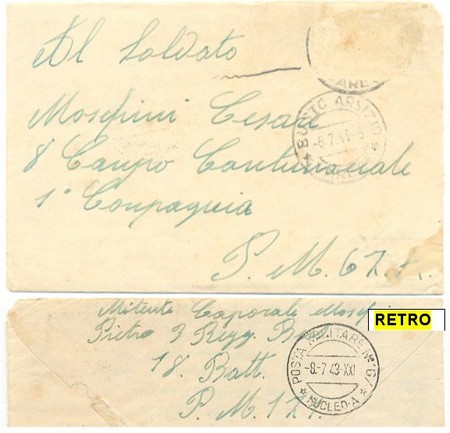 Al Soldato
Moschini Cesare
8 Campo Contumaciale
1ª Compagnia
P. M. 67. A.
BUSTO ARSIZIO
-6.7.43-
RETRO
Mittente Caporale
Pietro 3 Regg.
18. Batt.
P. M.
POSTA MILITARE Nº 67
-8.-7 43-XXI
NUCLEO-A